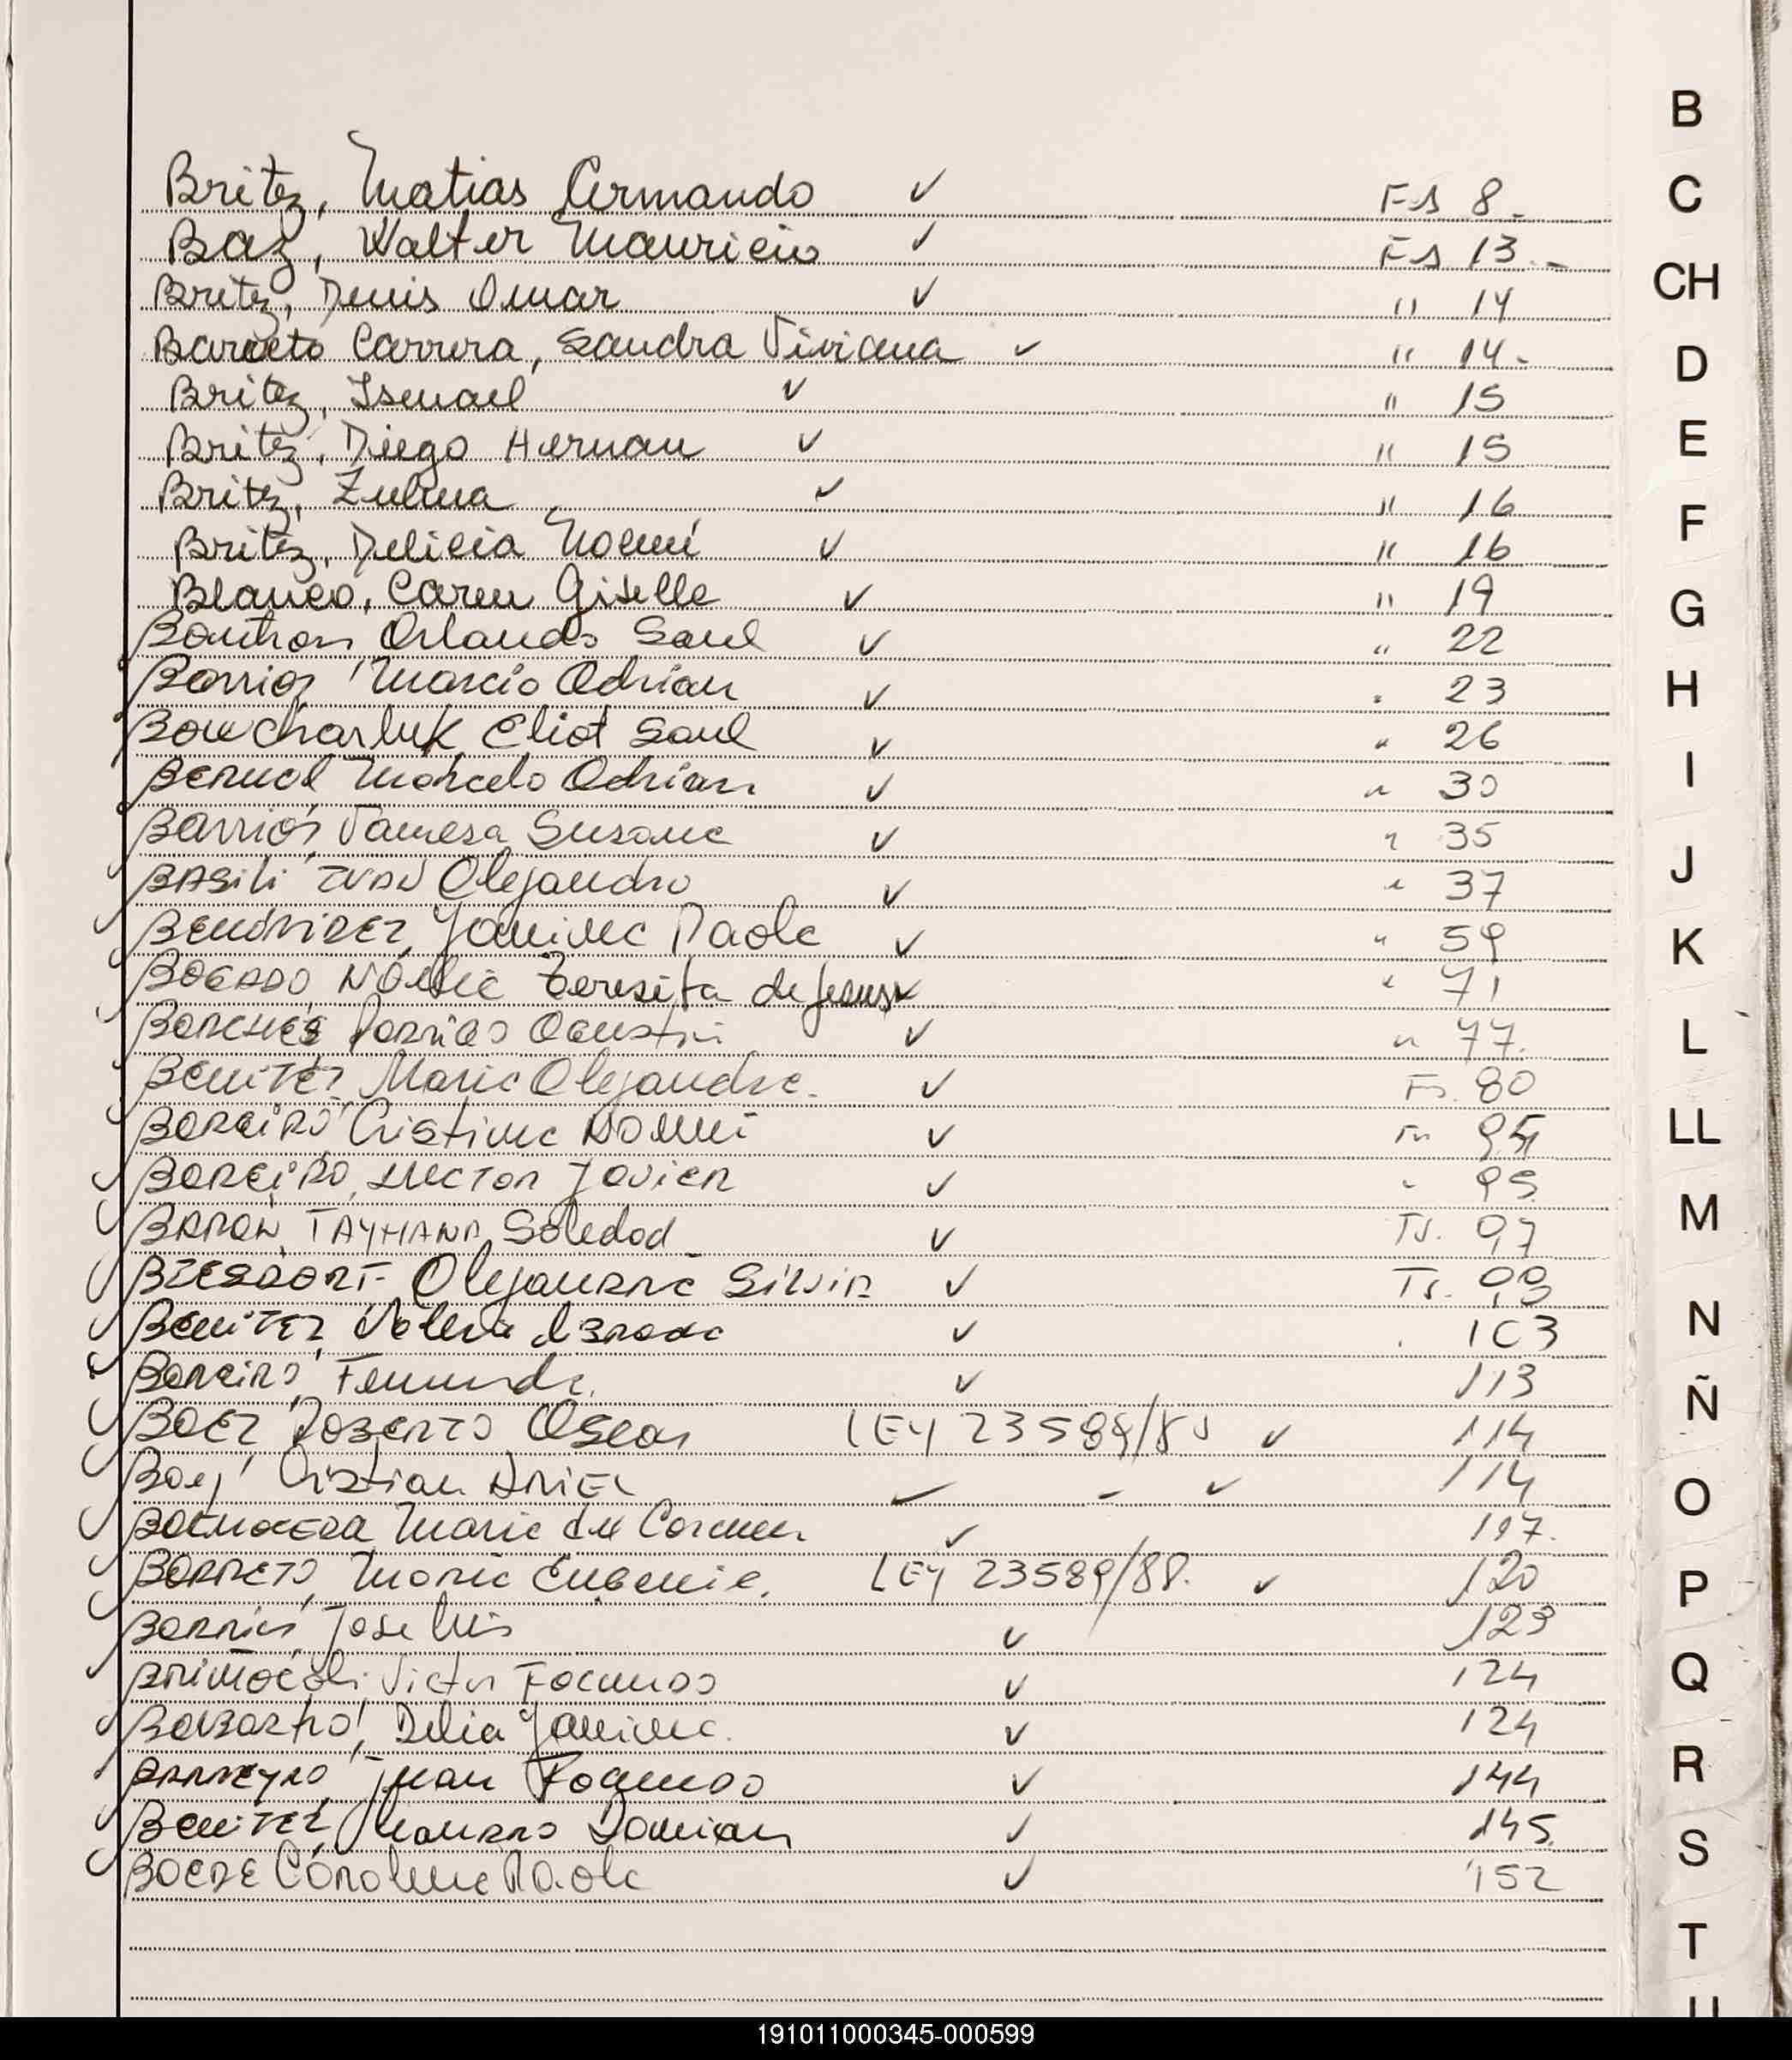 B
C
CH
D
E
F
G
H
I
J
K
L
LL
M
N
Ñ
O
P
Q
R
S
T
Britez, Matias Armando ✓ Fs 8.
Baz, Walter Mauricio ✓ Fs 13.-
Britez, Denis Omar ✓ " 14
Barreto Carrera, Sandra Viviana ✓ " 14.
Britez, Ismael ✓ " 15
Britez, Diego Hernan ✓ " 15
Britez, Zulma ✓ " 16
Britez, Delicia Noemí ✓ " 16
Blanco, Caren Giselle ✓ " 19
Orlando Saul ✓ " 22
Barrios Marcio Adrian ✓ " 23
Boucharluk Eliot Saul ✓ " 26
Bernal Marcelo Adrian ✓ " 30
Barrios Vanesa Susana ✓ " 35
Basili Ivan Alejandro ✓ " 37
Yanina Paola ✓ " 59
Bogado Noelia Teresita de Jesus ✓ " 71
Agustin ✓ " 77.
Benitez Maria Alejandra. ✓ Fs. 80
Bareiro Cristina Noemi ✓ Fs
Bareiro, Hector Javier ✓ " 95
Baron, Tayhana Soledad ✓ Fs. 97
Alejandra Silvia ✓ Fs.
Benitez ✓ 103
Bareiro, Fernanda. ✓ 113
Baez Roberto Oscar LEY 23589/89 ✓ 114
Cristian Ariel ✓ - ✓ 114
Maria del Carmen ✓ 117.
Barreto, Maria Eugenia. LEY 23589/88. ✓ 120
Barrios Jose Luis ✓ 123
Victor Facundo ✓ 124
Delia Yanina. ✓ 124
Barreyro Juan Facundo ✓ 144
Benitez Mauro Damian ✓ 145.
Carolina Paola ✓ 152
191011000345-000599